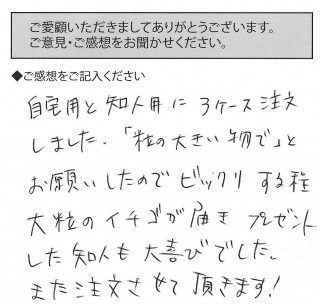 ご愛顧いただきましてありがとうございます。
ご意見・ご感想をお聞かせください。
◆ご感想をご記入ください
自宅用と知人用に3ケース注文
しました。「粒の大きい物で」と
お願いしたのでビックリする程
大粒のイチゴが届きプレゼント
した知人も大喜びでした。
また注文させて頂きます!